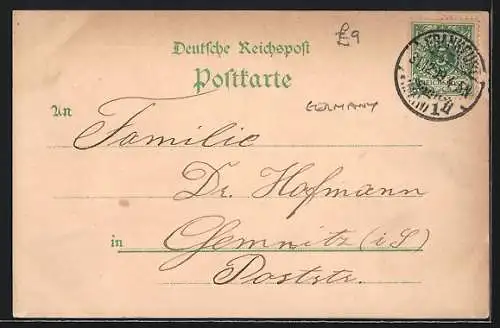 £9
Deutsche Reichspost
Postkarte
An
GERMANY
Familie
Dr. Hofmann
in Chemnitz (i/S)
Poststr.
FRANKFURT
14